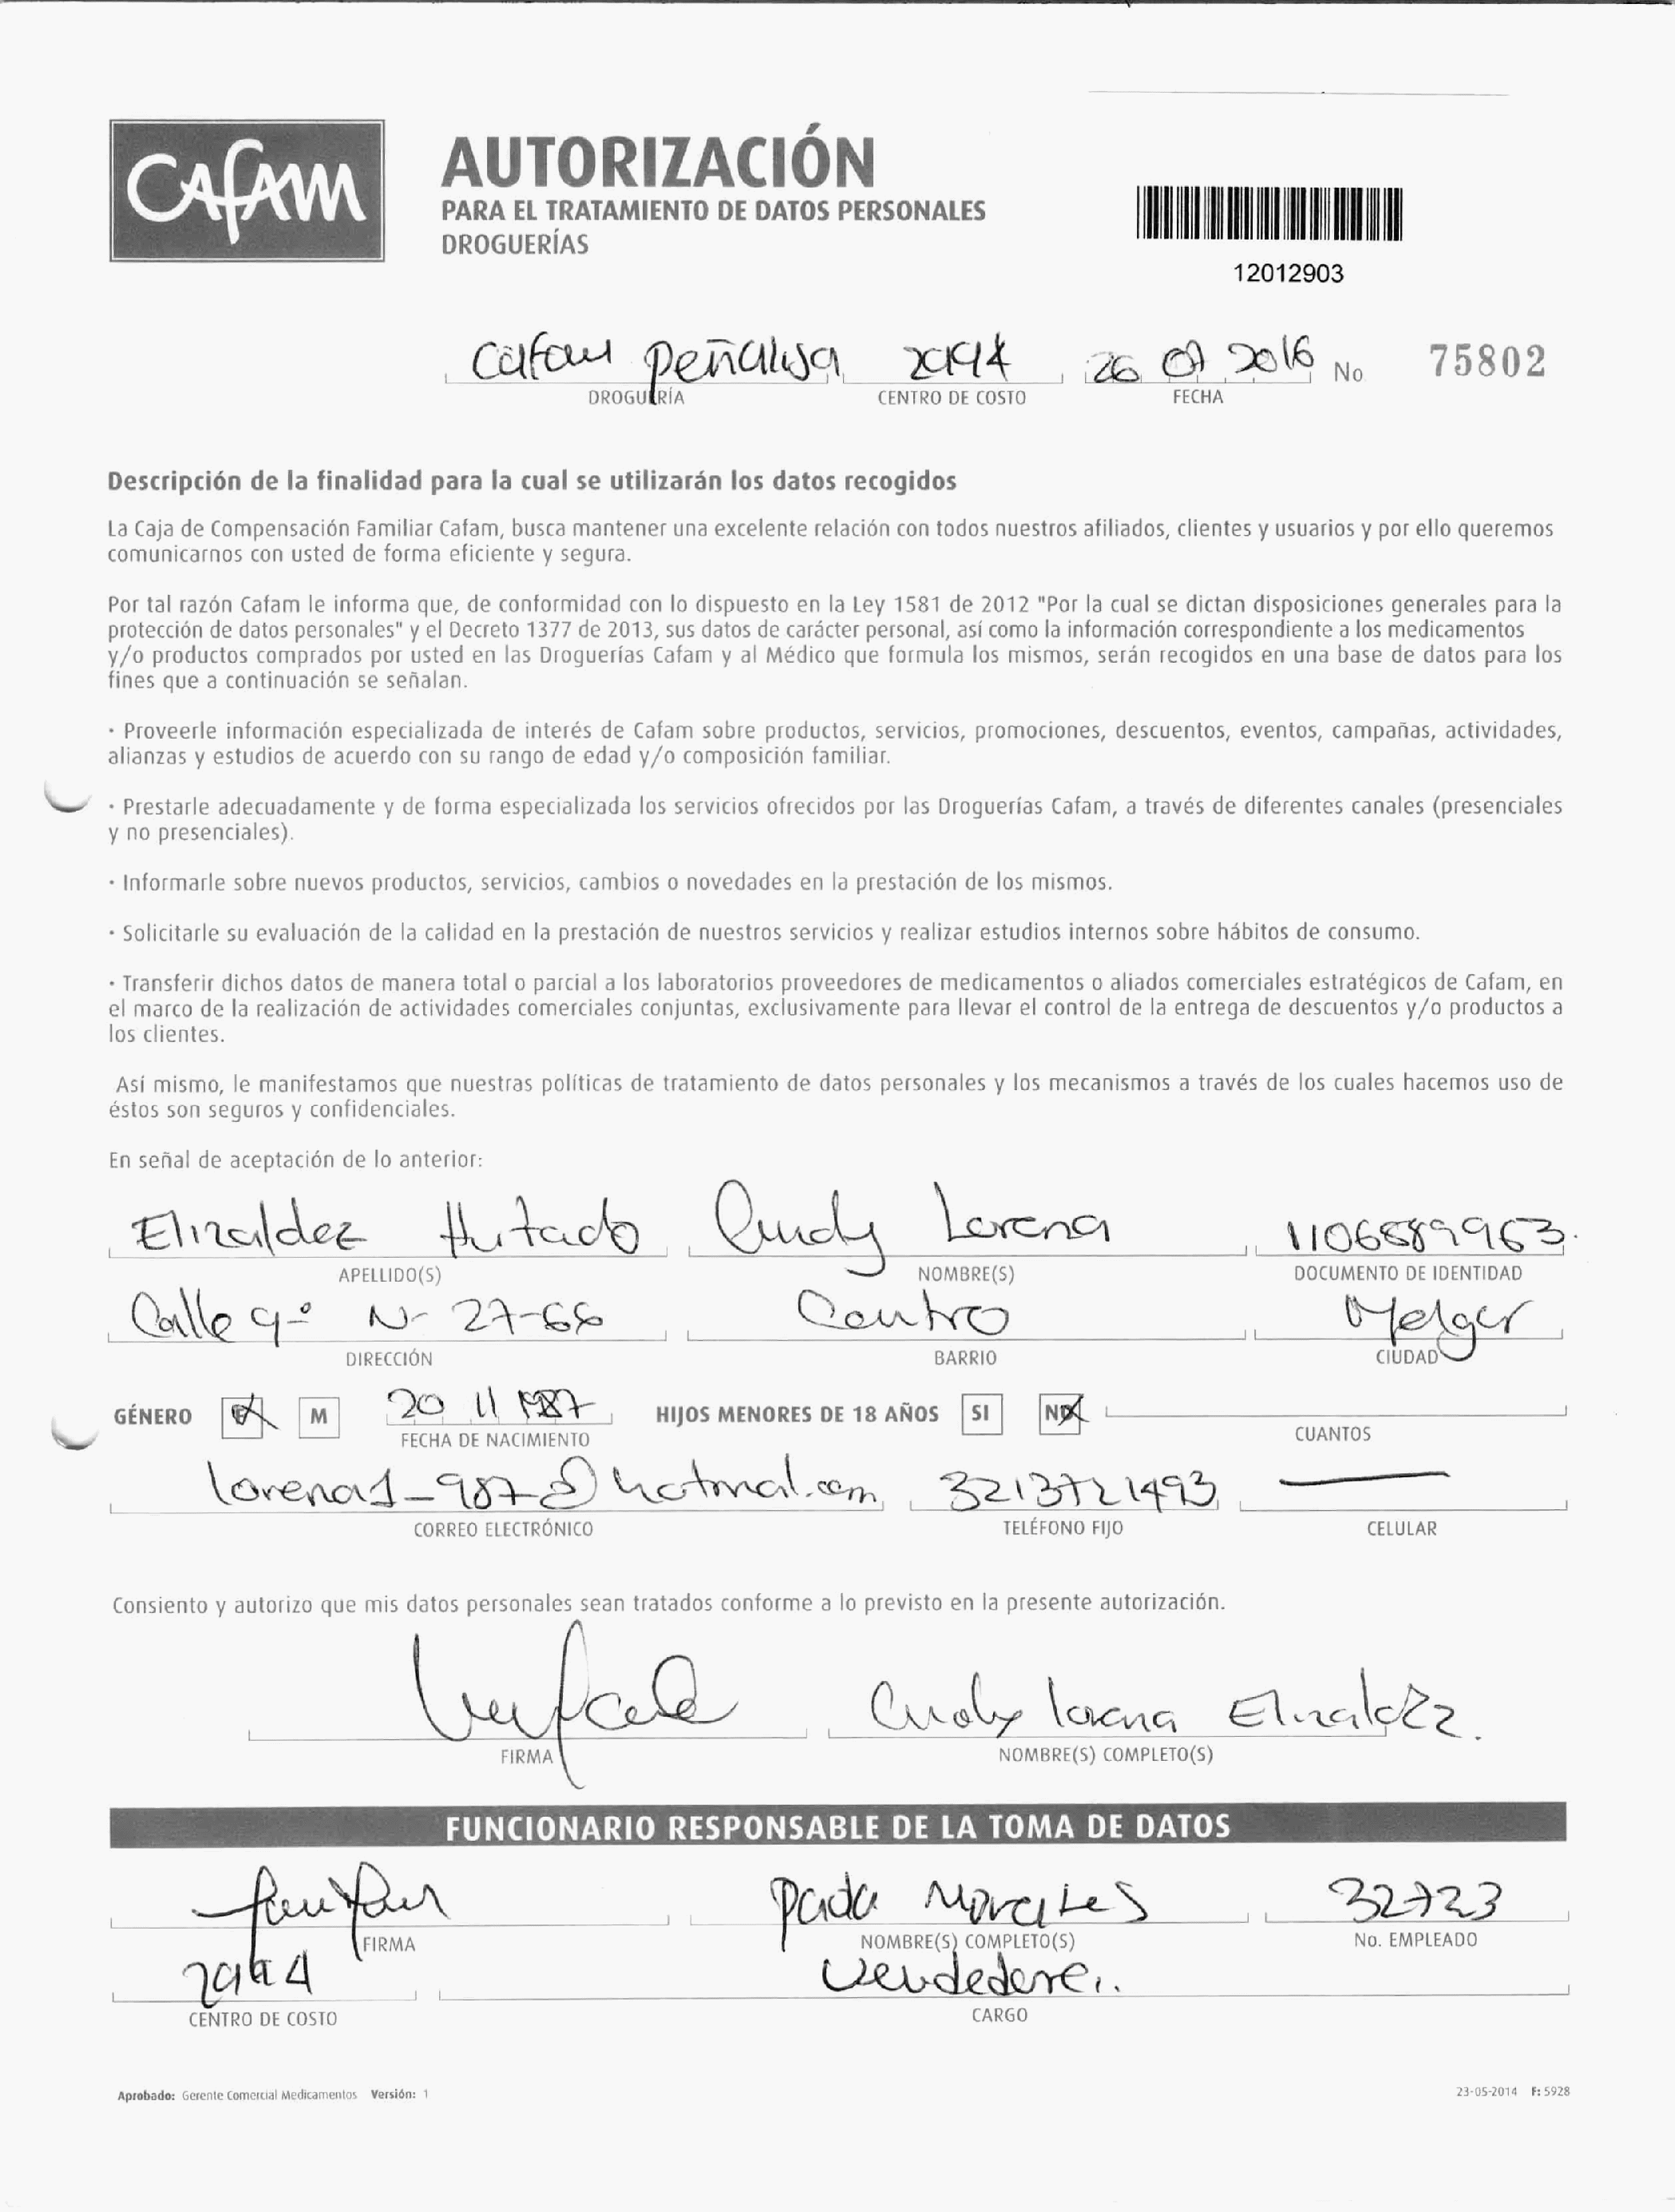 CAFAM
AUTORIZACIÓN
PARA EL TRATAMIENTO DE DATOS PERSONALES
DROGUERÍAS
12012903
Cafam Peñalisa 26 07 2016 No 75802
DROGUERÍA CENTRO DE COSTO FECHA
Descripción de la finalidad para la cual se utilizarán los datos recogidos
La Caja de Compensación Familiar Cafam, busca mantener una excelente relación con todos nuestros afiliados, clientes y usuarios y por ello queremos
comunicarnos con usted de forma eficiente y segura.
Por tal razón Cafam le informa que, de conformidad con lo dispuesto en la Ley 1581 de 2012 "Por la cual se dictan disposiciones generales para la
protección de datos personales" y el Decreto 1377 de 2013, sus datos de carácter personal, así como la información correspondiente a los medicamentos
y/o productos comprados por usted en las Droguerías Cafam y al Médico que formula los mismos, serán recogidos en una base de datos para los
fines que a continuación se señalan.
· Proveerle información especializada de interés de Cafam sobre productos, servicios, promociones, descuentos, eventos, campañas, actividades,
alianzas y estudios de acuerdo con su rango de edad y/o composición familiar.
· Prestarle adecuadamente y de forma especializada los servicios ofrecidos por las Droguerías Cafam, a través de diferentes canales (presenciales
y no presenciales).
· Informarle sobre nuevos productos, servicios, cambios o novedades en la prestación de los mismos.
· Solicitarle su evaluación de la calidad en la prestación de nuestros servicios y realizar estudios internos sobre hábitos de consumo.
· Transferir dichos datos de manera total o parcial a los laboratorios proveedores de medicamentos o aliados comerciales estratégicos de Cafam, en
el marco de la realización de actividades comerciales conjuntas, exclusivamente para llevar el control de la entrega de descuentos y/o productos a
los clientes.
Así mismo, le manifestamos que nuestras políticas de tratamiento de datos personales y los mecanismos a través de los cuales hacemos uso de
éstos son seguros y confidenciales.
En señal de aceptación de lo anterior:
Elizaldez Hurtado Cindy Lorena 1106889963.
APELLIDO(S) NOMBRE(S) DOCUMENTO DE IDENTIDAD
Calle 9º N- 27-66 Centro Melgar
DIRECCIÓN BARRIO CIUDAD
GÉNERO F M 20 11 1987 HIJOS MENORES DE 18 AÑOS SI NO
FECHA DE NACIMIENTO CUANTOS
lorena1_987@hotmail.com 3213721493
CORREO ELECTRÓNICO TELÉFONO FIJO CELULAR
Consiento y autorizo que mis datos personales sean tratados conforme a lo previsto en la presente autorización.
Cindy lorena Elizaldez.
FIRMA NOMBRE(S) COMPLETO(S)
FUNCIONARIO RESPONSABLE DE LA TOMA DE DATOS
Paola Morales 32723
FIRMA NOMBRE(S) COMPLETO(S) No. EMPLEADO
Vendedora.
CENTRO DE COSTO CARGO
Aprobado: Gerente Comercial Medicamentos Versión: 1 23-05-2014 F: 5928